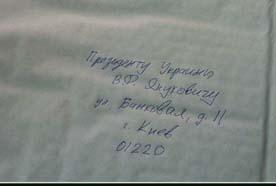 Президенту Украины
В.Ф. Януковичу
ул. Банковая, д. 11
г. Киев
01220